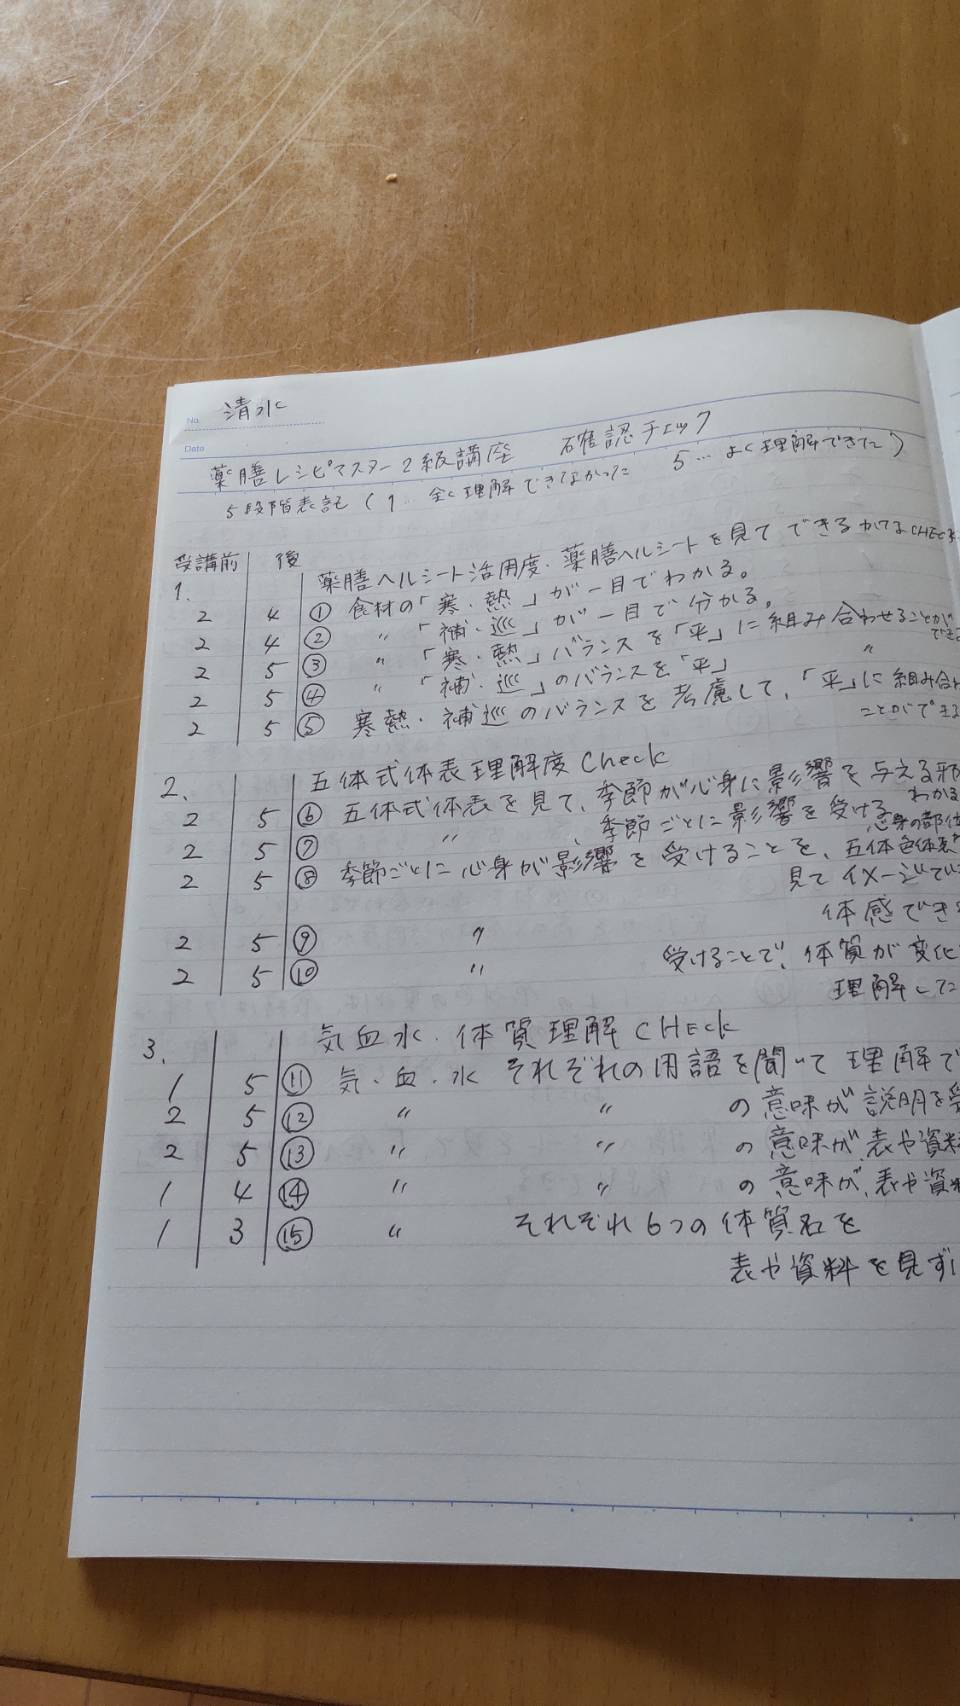 No. 清水
Date
薬膳レシピマスター2級講座 確認チェック
5段階表記(1… 全く理解できなかった 5… よく理解できた)
受講前 後
1. 薬膳ヘルシート活用度・薬膳ヘルシートを見てできるか CHECK
2 4 ① 食材の「寒・熱」が一目でわかる。
2 4 ② 〃 「補・巡」が一目で分かる。
2 5 ③ 〃 「寒・熱」バランスを「平」に組み合わせることができる
2 5 ④ 〃 「補・巡」のバランスを「平」 〃
2 5 ⑤ 寒熱・補巡のバランスを考慮して、「平」に組み合わ
ことができる
2. 五体式体表理解度Check
2 5 ⑥ 五体式体表を見て、季節が心身に影響を与える邪
わかる
2 5 ⑦ 〃 、季節ごとに影響を受ける心身の部位
2 5 ⑧ 季節ごとに心身が影響を受けることを、五体色体表を
見てイメージでい
体感でき
2 5 ⑨ 〃
2 5 ⑩ 〃 受けることで、体質が変化
理解した
3. 気血水・体質理解CHEck
1 5 ⑪ 気・血・水 それぞれの用語を聞いて理解で
2 5 ⑫ 〃 〃 の意味が説明を受
2 5 ⑬ 〃 〃 の意味が、表や資料
1 4 ⑭ 〃 〃 の意味が、表や資料
1 3 ⑮ 〃 それぞれ6つの体質名を
表や資料を見ずに